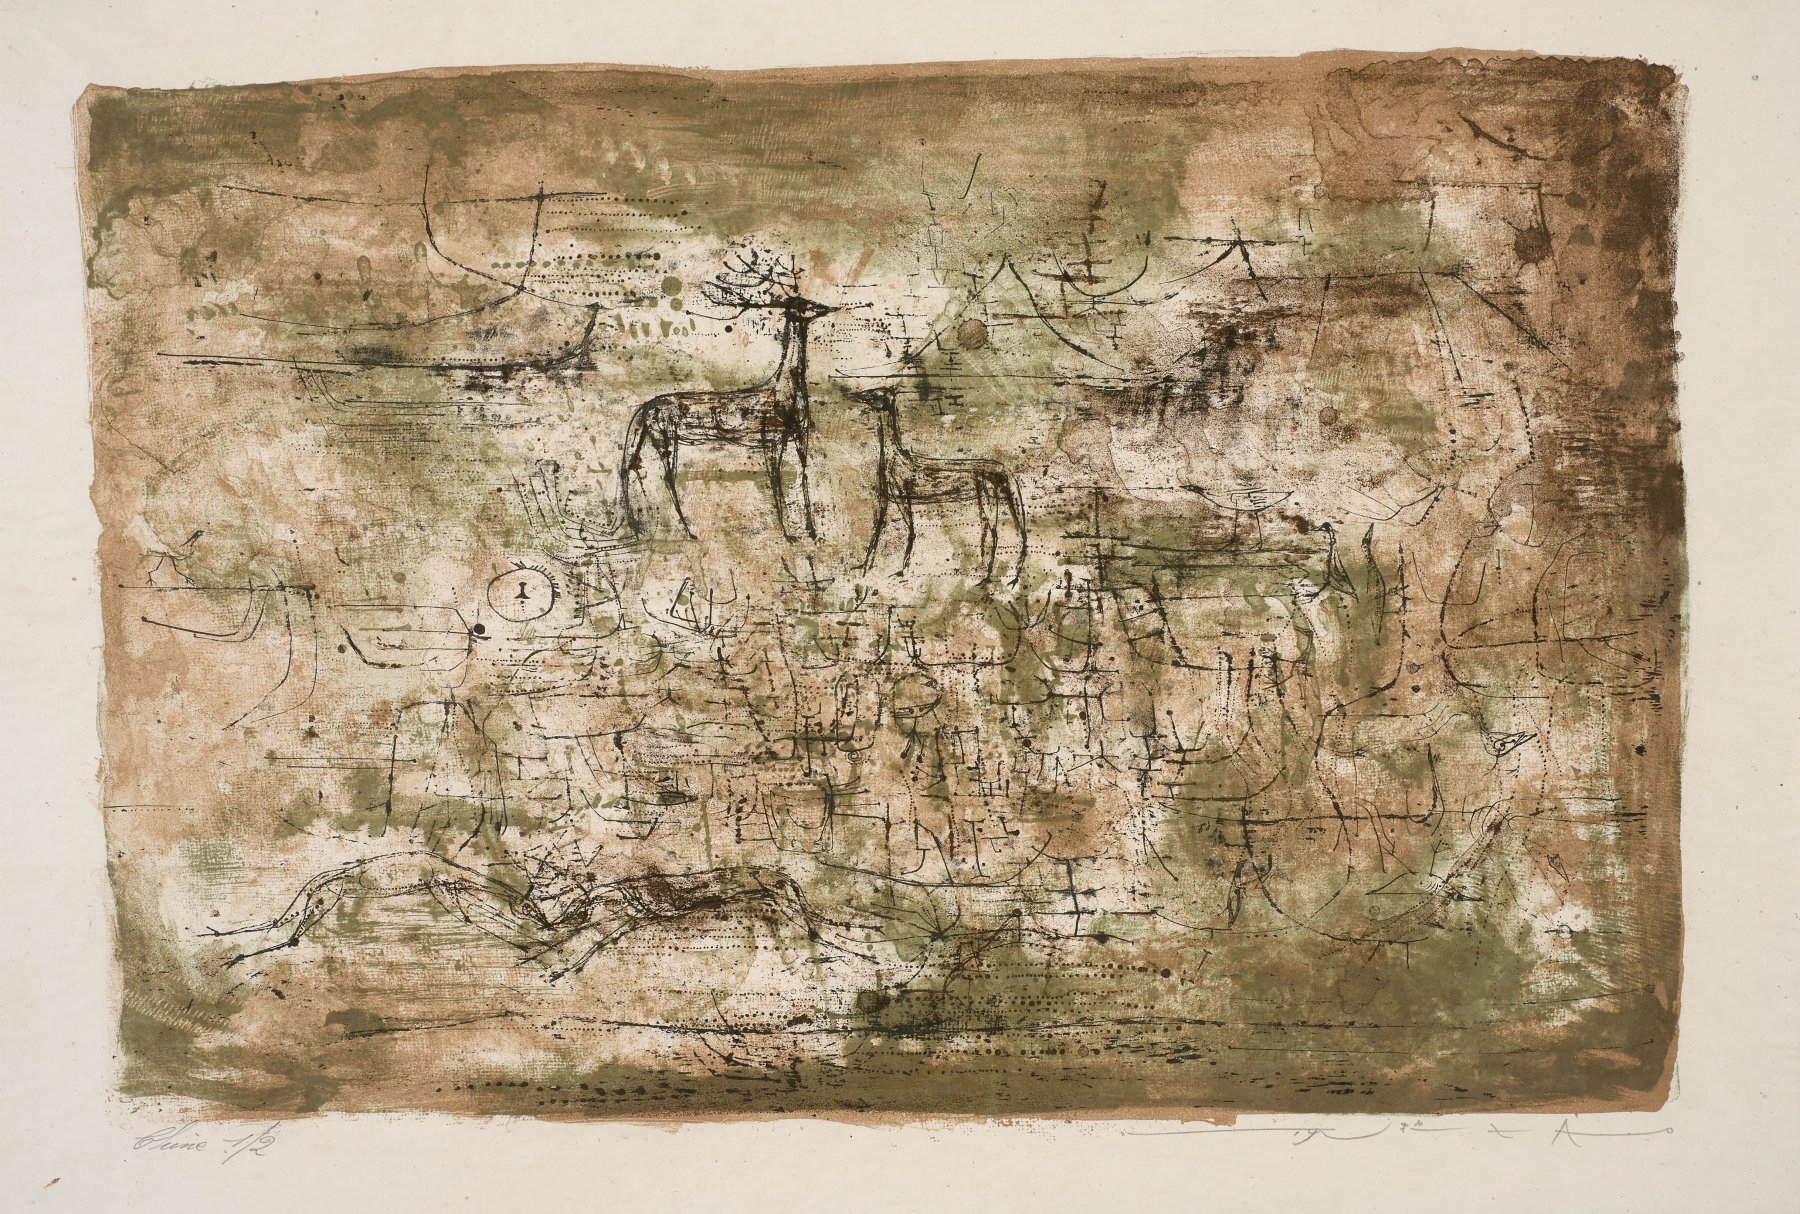 Chine 1/2
无极 ZAO